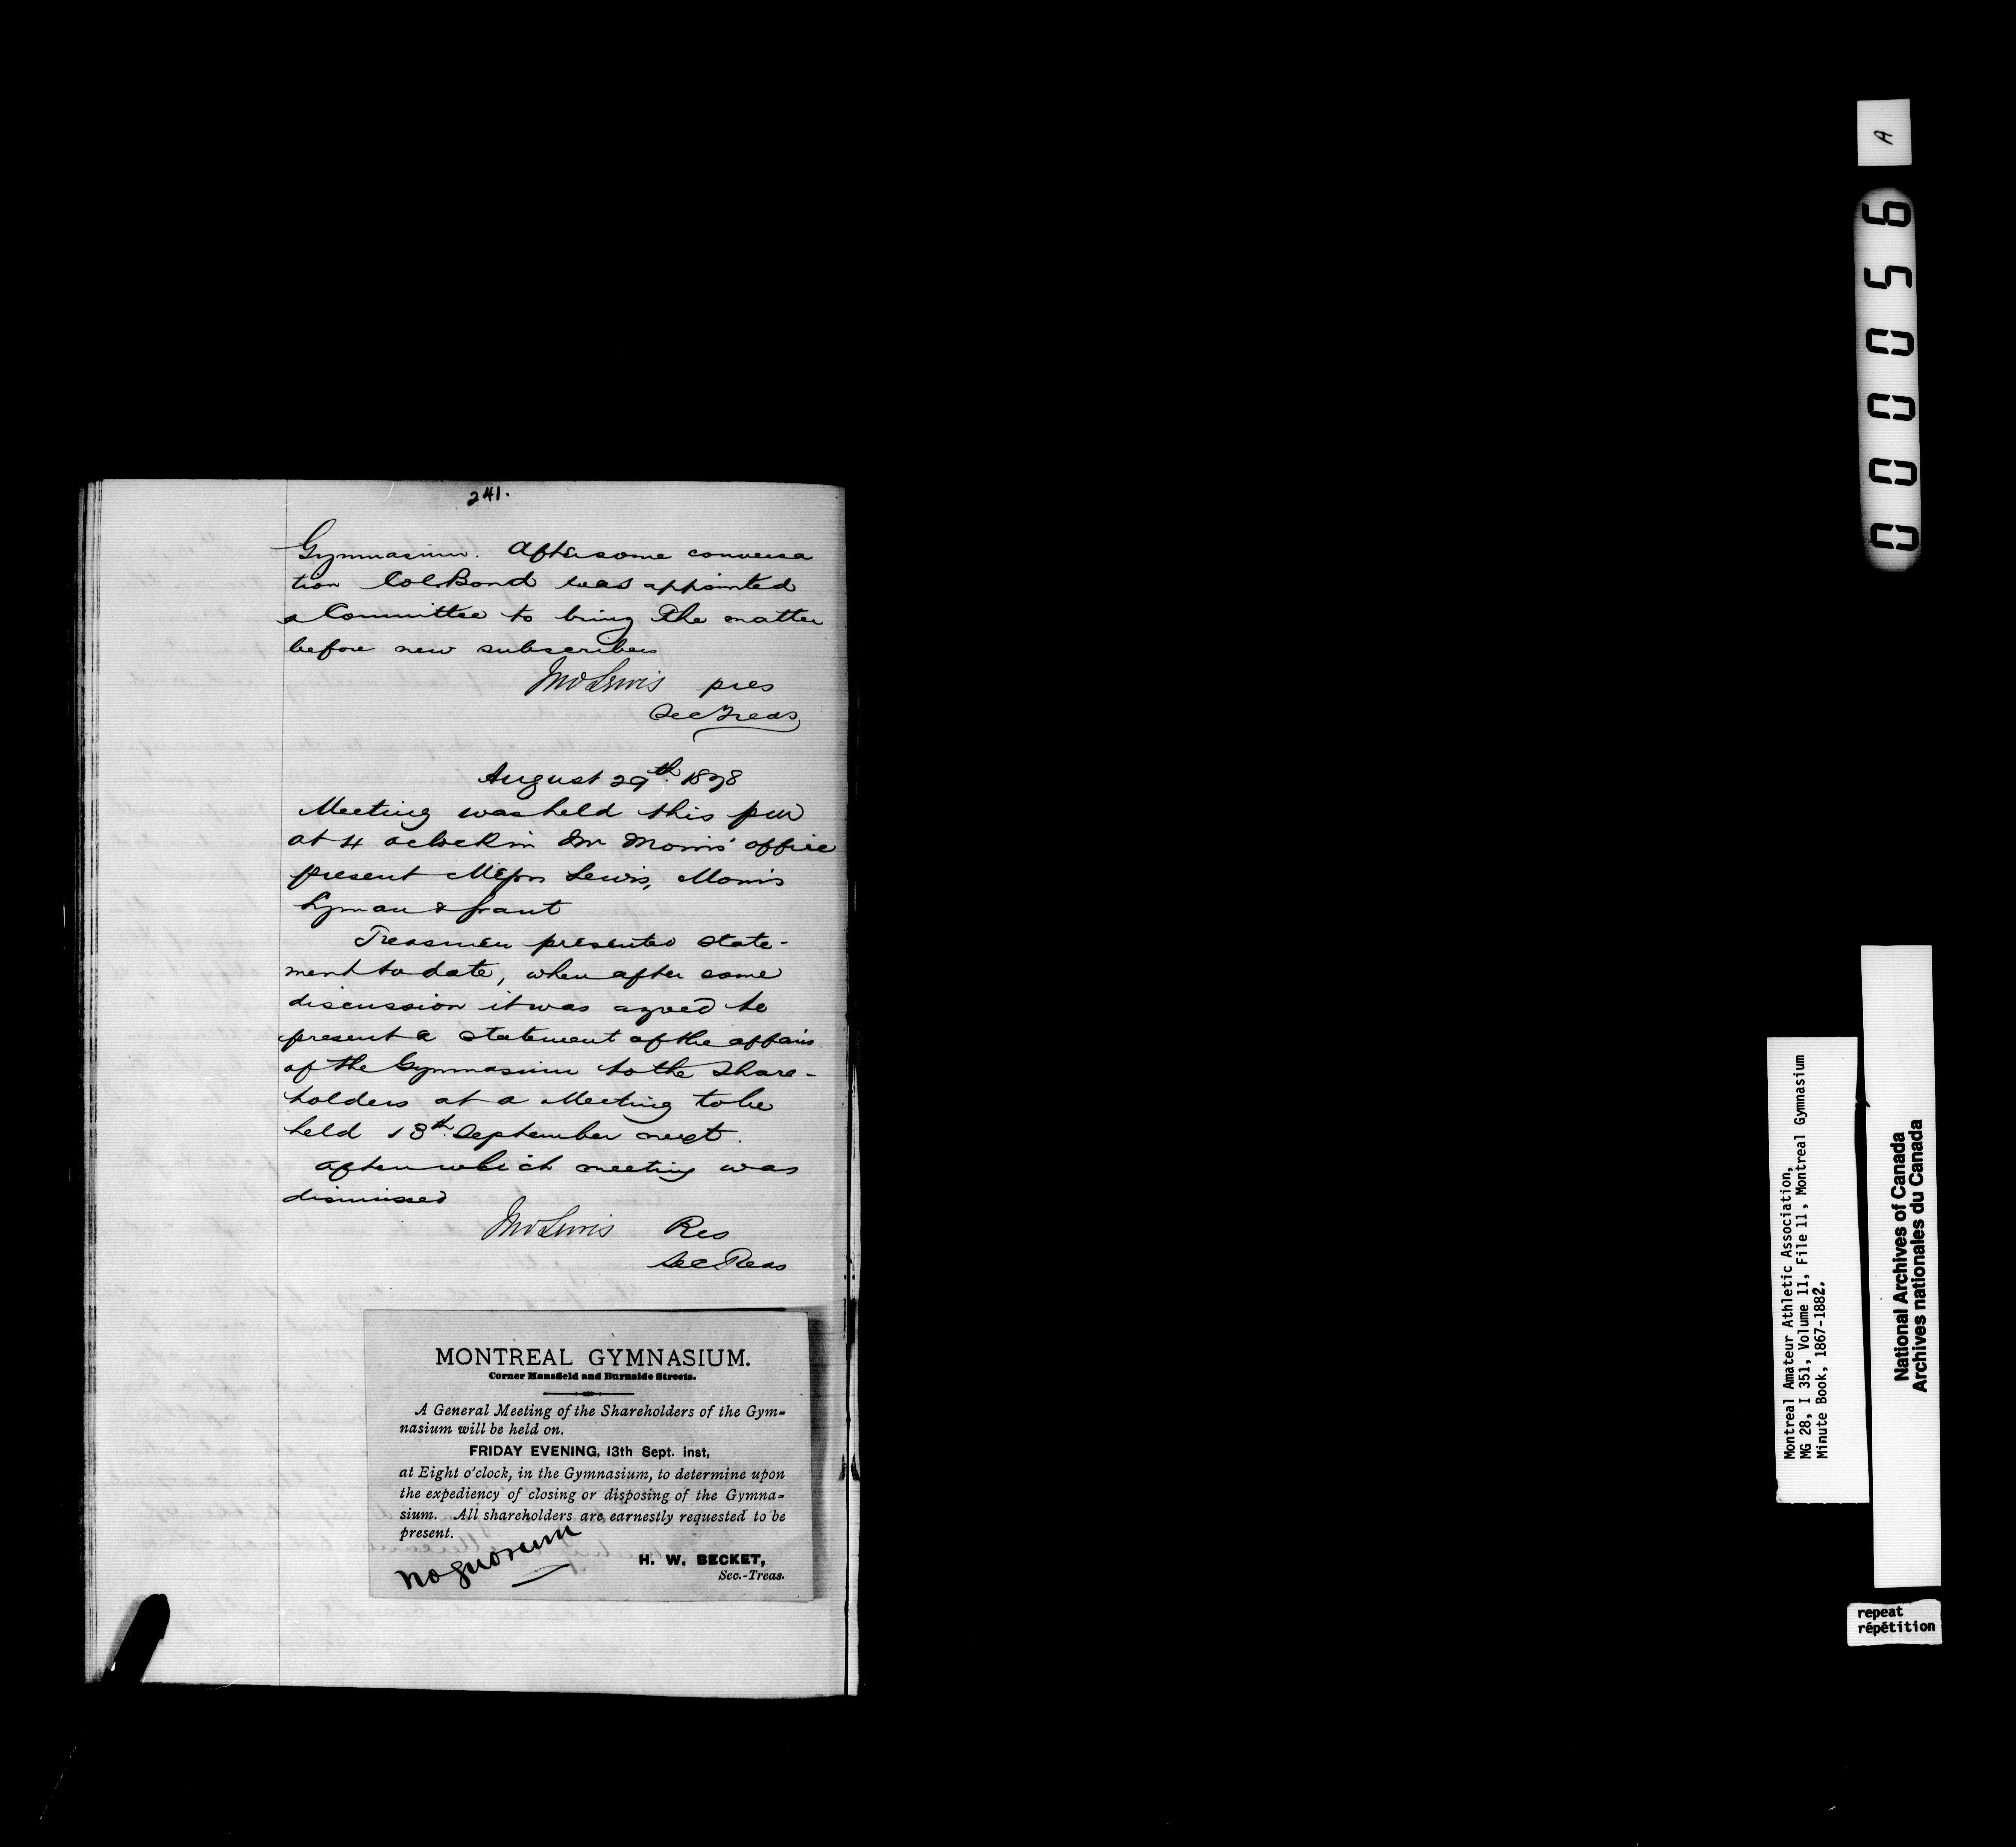 241.
Gymnasium. After some conversa
tion Col. Bond was appointed
a Committee to bring the matter
before new subscribers
Lewis pres
Sec Treas
August 29th 1878
Meeting was held this pm
at 4 oclock in Mr Morris' office
present Messrs Lewis, Morris
Lyman & Grant
Treasurer presented state-
ment to date, when after some
discussion it was agreed to
present a statement of the affairs
of the Gymnasium to the Share-
holders at a Meeting to be
held 13th September next.
after which meeting was
dismissed
Lewis Pres
Sec Treas
MONTREAL GYMNASIUM.
Corner Mansfield and Burnside Streets.
A General Meeting of the Shareholders of the Gym-
nasium will be held on.
FRIDAY EVENING, 13th Sept. inst,
at Eight o'clock, in the Gymnasium, to determine upon
the expediency of closing or disposing of the Gymna-
sium. All shareholders are earnestly requested to be
present.
no quorum
H. W. BECKET,
Sec.-Treas.
A
000056
Montreal Amateur Athletic Association,
MG 28, I 351, Volume 11, File 11, Montreal Gymnasium
Minute Book, 1867-1882.
National Archives of Canada
Archives nationales du Canada
repeat
répétition